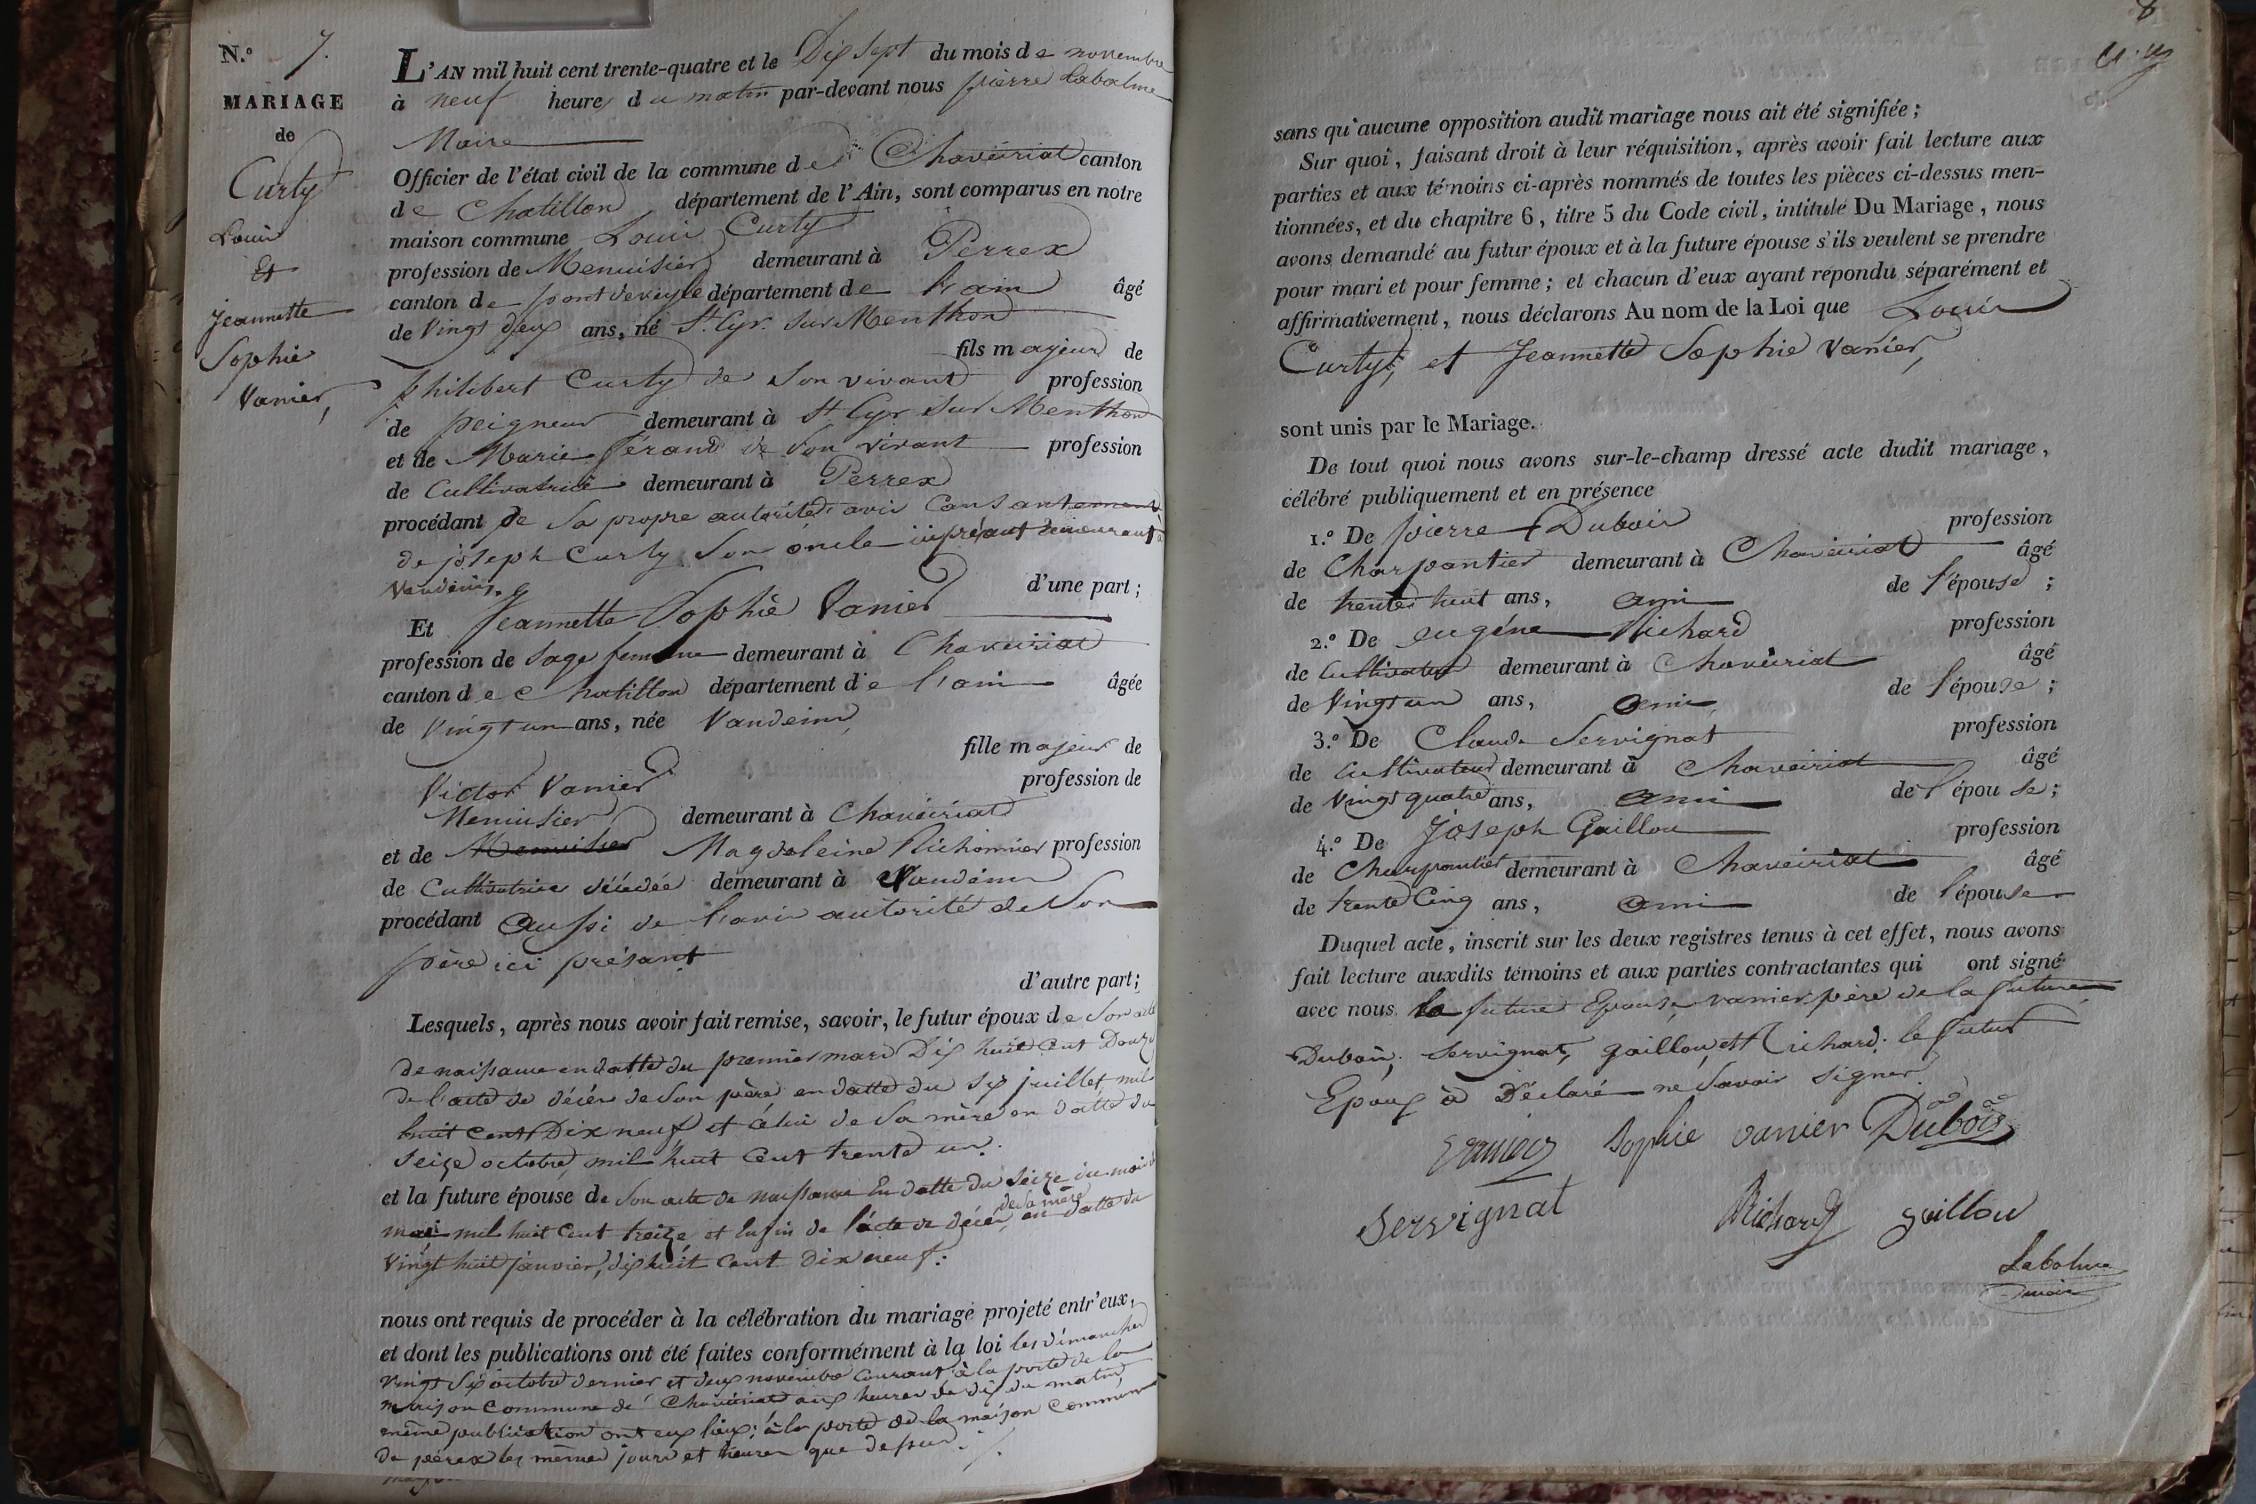 N.º 7.
MARIAGE
de
Curty
Louis
Et
Jeannette
Sophie
Vanier,
L'AN mil huit cent trente-quatre et le Dix sept du mois de novembre
à neuf heures du matin par-devant nous pierre Labalme
Maire
Officier de l'état civil de la commune de Chaveiriat canton
de Chatillon département de l'Ain, sont comparus en notre
maison commune Louis Curty
profession de Menuisier demeurant à Perrex
canton de pontdeveyle département de l'ain âgé
de Vingt deux ans, né St. Cyr. sur Menthon
fils majeur de
philibert Curty de son vivant profession
de peigneur demeurant à St Cyr sur Menthon
et de Marie férand de son vivant profession
de Cultivatrice demeurant à Perrex
procédant de sa propre autorité avis Consantement
de joseph Curty son oncle ici présant demeurant à
Vandeins. d'une part;
Et Jeannette Sophie Vanier
profession de Sage femme demeurant à Chaveiriat
canton de Chatillon département de l'ain âgée
de Vingt un ans, née Vandeins
fille majeur de
Victor Vanier profession de
Menuisier demeurant à Chaveiriat
et de Menuisier Magdeleine Richonnier profession
de Cultivatrice décédée demeurant à Vandeins
procédant aussi de l'avis autorité de Son
père ici présant
d'autre part;
Lesquels, après nous avoir fait remise, savoir, le futur époux de Son acte
de naissance en datte du premier mars Dix huit Cent Douze
de l'acte de décés de Son père en datte du six juillet mil
huit cent Dix neuf et célui de Sa mère en datte du
seize octobre mil huit Cent trente un.
et la future épouse de Son acte de naissance En datte du seize du mois de
mai mil huit Cent treize et Enfin de l'acte de décés de sa mère en datte du
Vingt huit janvier, dix huit Cent Dix neuf.
nous ont requis de procéder à la célébration du mariage projeté entr'eux,
et dont les publications ont été faites conformément à la loi les dimanches
vingt six octobre dernier et deux novembre Courant, à la porte de la
maison Commune de Chaveiriat aux heures de dix du matin,
même publication ont eux lieux; à la porte de la maison Commune
de pérex les mêmes jours et heures que dessus.
8
sans qu'aucune opposition audit mariage nous ait été signifiée;
Sur quoi, faisant droit à leur réquisition, après avoir fait lecture aux
parties et aux témoins ci-après nommés de toutes les pièces ci-dessus men-
tionnées, et du chapitre 6, titre 5 du Code civil, intitulé Du Mariage, nous
avons demandé au futur époux et à la future épouse s'ils veulent se prendre
pour mari et pour femme; et chacun d'eux ayant répondu séparément et
affirmativement, nous déclarons Au nom de la Loi que Louis
Curty, et Jeannette Sophie Vanier,
sont unis par le Mariage.
De tout quoi nous avons sur-le-champ dressé acte dudit mariage,
célébré publiquement et en présence
1.º De pierre Dubois profession
de Charpantier demeurant à Chaveiriat âgé
de trente huit ans, ami de l'épouse;
2.º De eugéne Richard profession
de Cultivateur demeurant à Chaveiriat âgé
de Vingt un ans, ami de l'épouse;
3.º De Claude Servignat profession
de Cultivateur demeurant à Chaveiriat âgé
de Vingt quatre ans, ami de l'épouse;
4.º De Joseph Gaillou profession
de Charpantier demeurant à Chaveiriat âgé
de trente Cinq ans, ami de l'épouse
Duquel acte, inscrit sur les deux registres tenus à cet effet, nous avons
fait lecture auxdits témoins et aux parties contractantes qui ont signé
avec nous la future Epouse, vanier père de la future
Dubois, Servignat, gaillou, et Richard. le futur
Epoux a Déclaré ne Savoir signer.
vanier Sophie vanier Dubois
servignat Richard gaillou
Labalme
maire